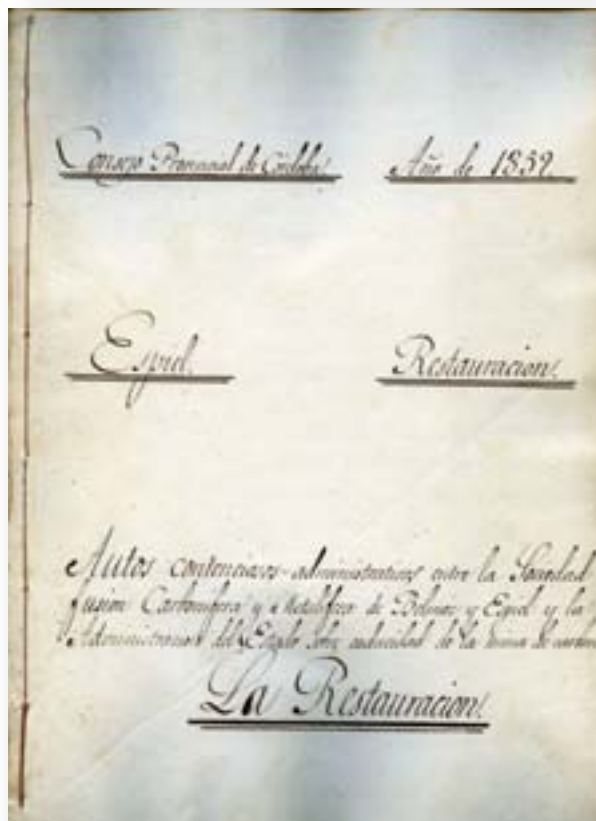 Consejo Provincial de Córdoba. Año de 1859.
Espiel. Restauracion.
Autos contencioso-administrativos entre la Sociedad
fusion Carbonifera y Metalifera de Belmez y Espiel y la
Administracion del Estado sobre caducidad de la mina de carbon
La Restauracion.